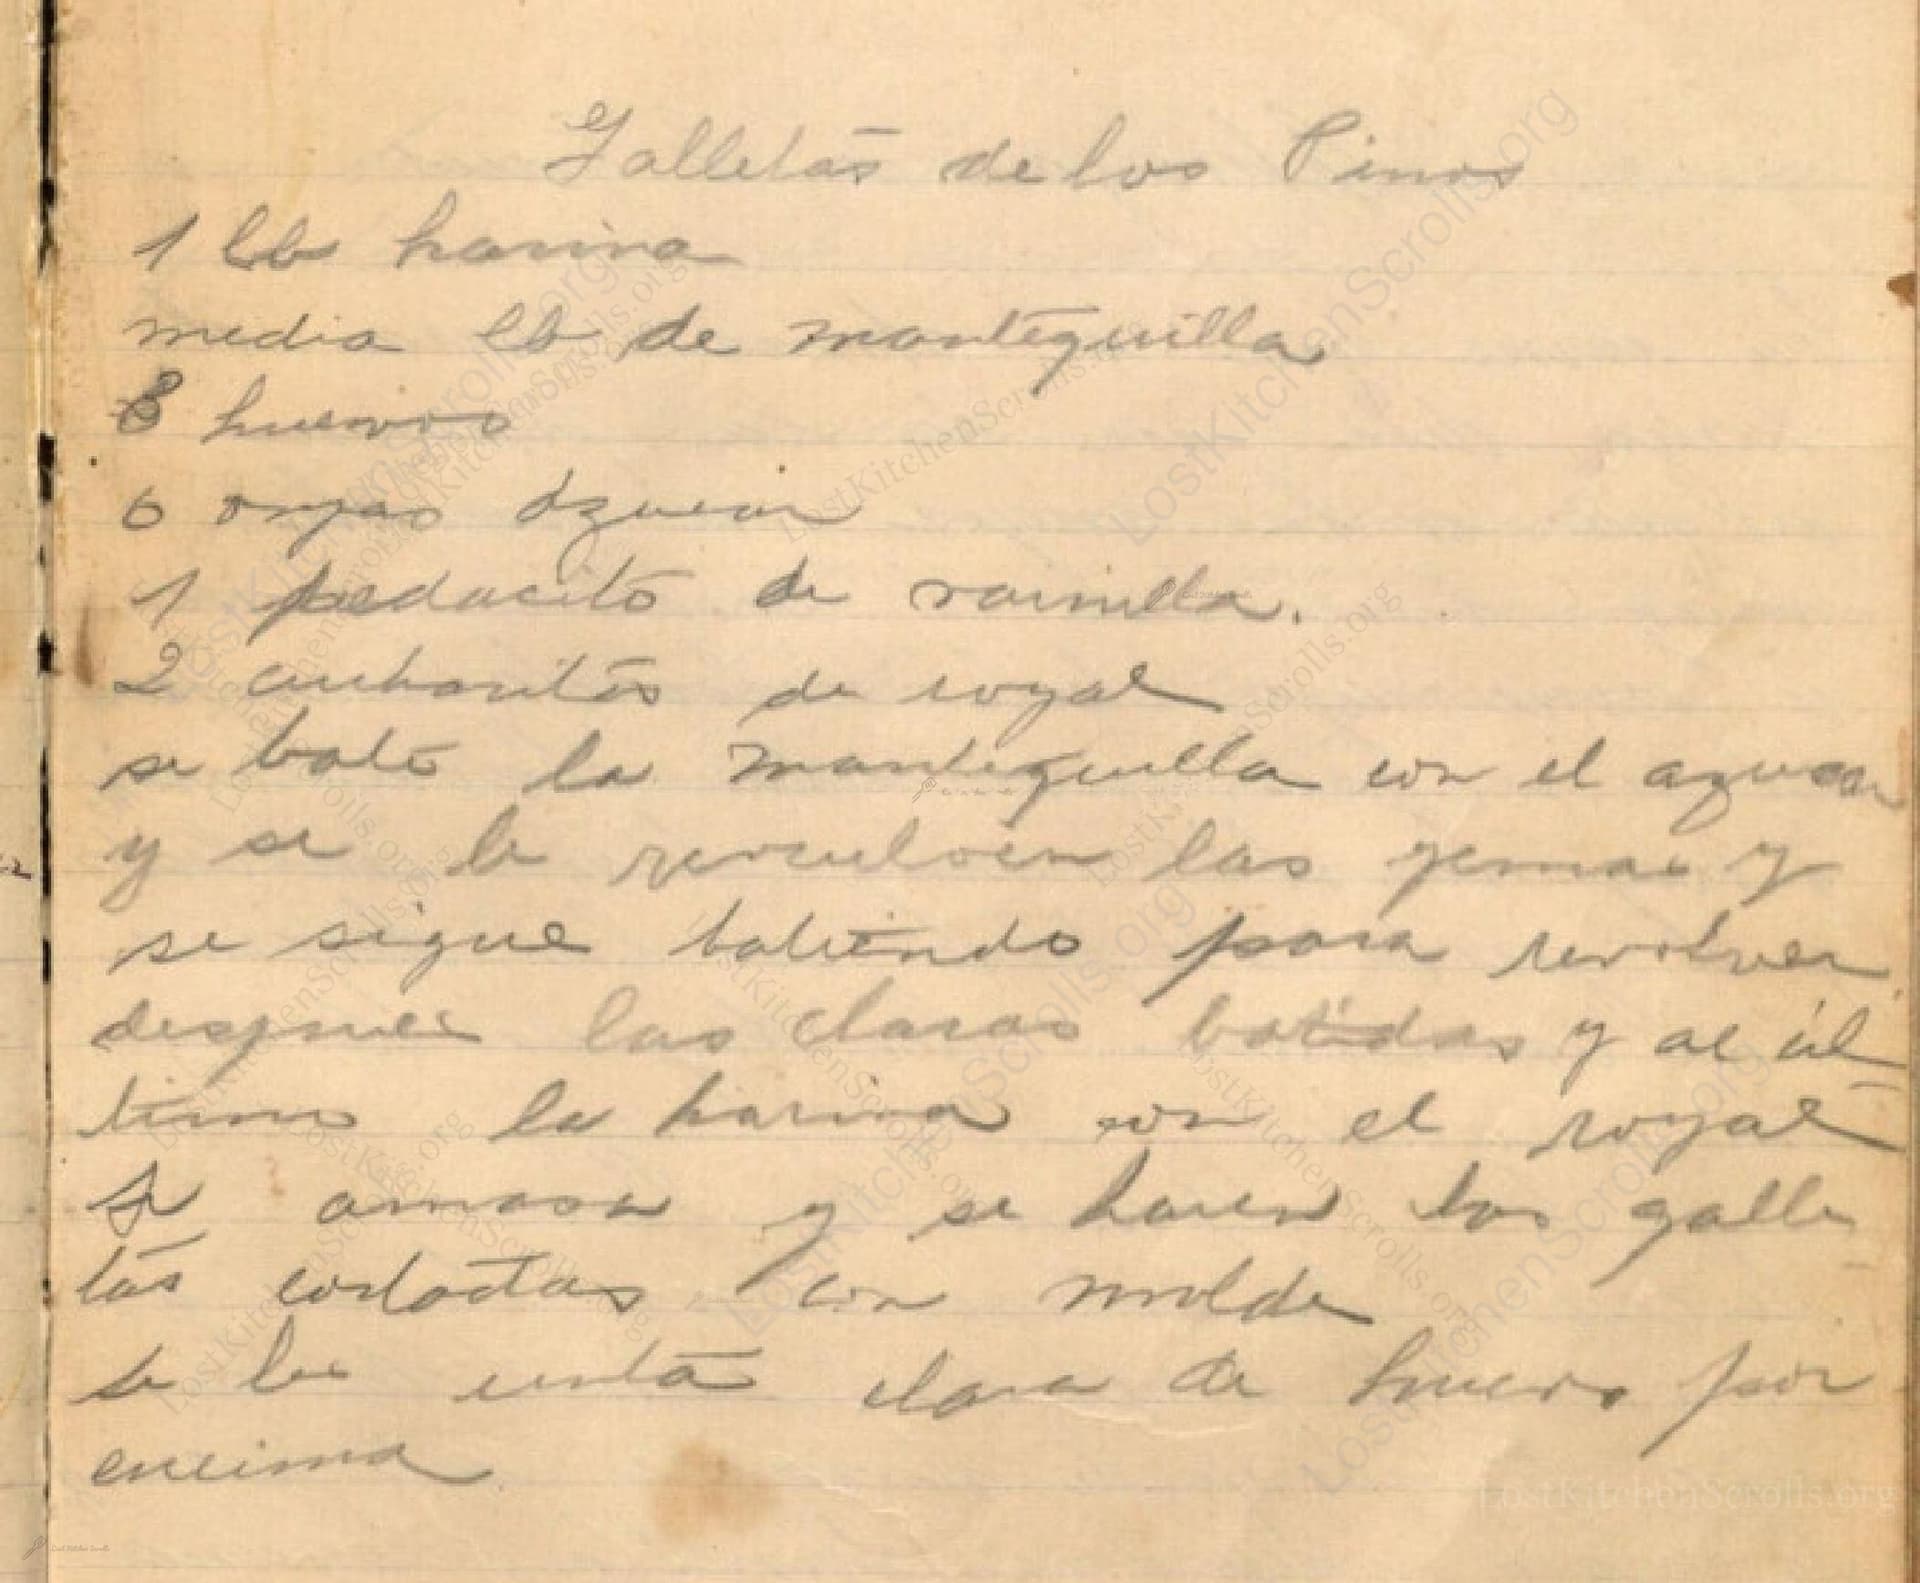 Galletas de los Pinos
1 lb harina
media lb de mantequilla
8 huevos
6 onzas azucar
1 pedacito de vainilla.
2 cucharitas de royal
se bate la mantequilla con el azucar
y se le revuelven las yemas y
se sigue batiendo para revolver
despues las claras batidas y al úl
timo la harina con el royal
se amasa y se hacen las galle
tas cortadas con molde
se les unta clara de huevo por
encima
LostKitchenScrolls.org